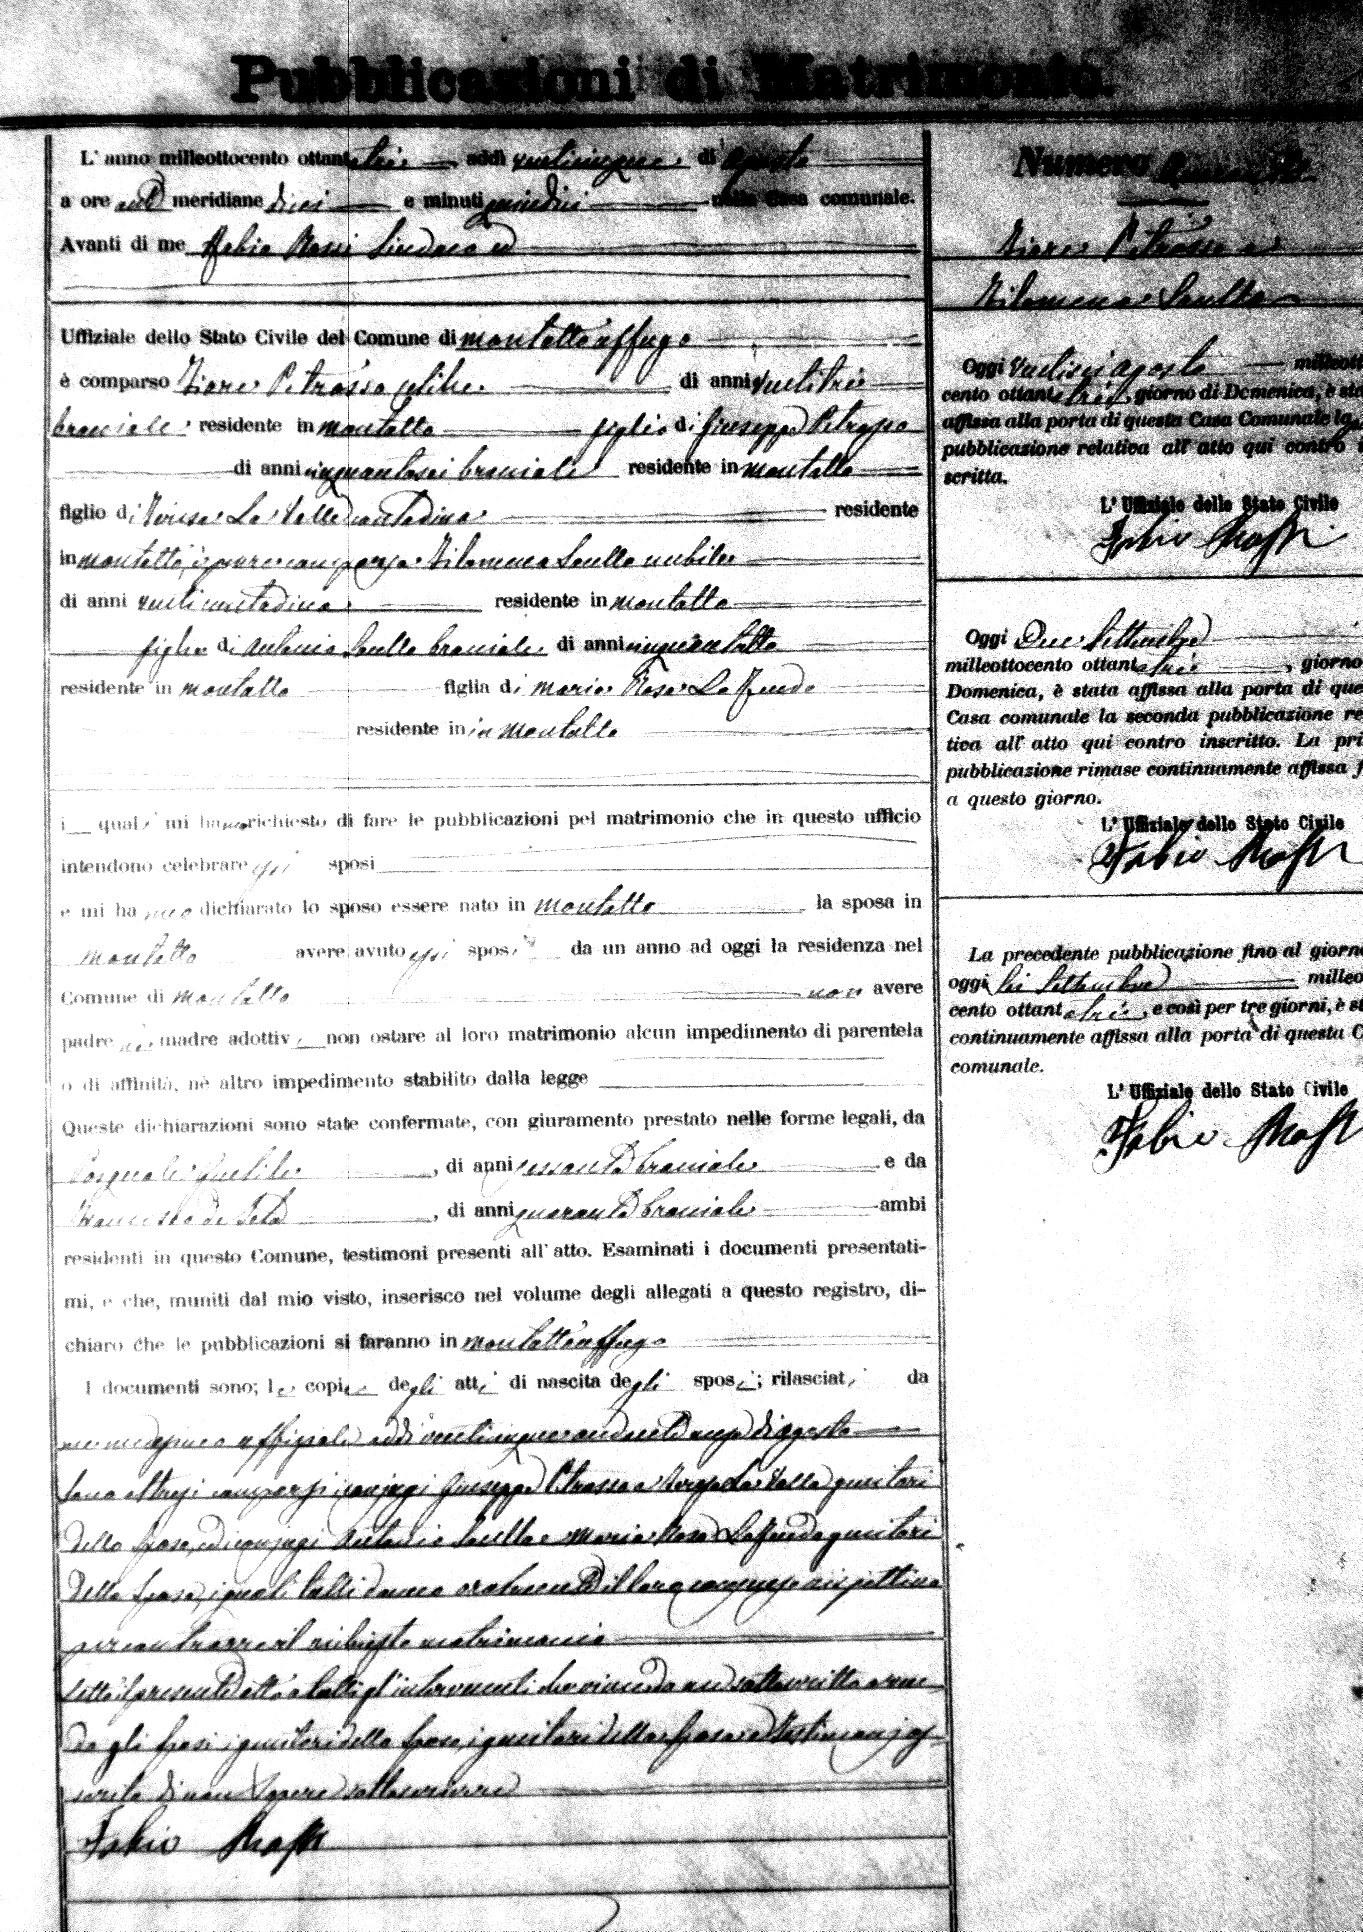 Pubblicazioni di Matrimonio.
L'anno milleottocento ottantatrè addì venticinque di Agosto
a ore anti meridiane dieci e minuti quindici nella Casa comunale.
Avanti di me Fabio Rossi Sindaco ed
Uffiziale dello Stato Civile del Comune di Montalto Uffugo
è comparso Fiore Petrasso celibe di anni ventitrè
bracciale residente in Montalto figlio di Giuseppe Petrasso
di anni cinquantasei bracciale residente in Montalto
figlio di Teresa La Valle contadina residente
in Montalto, è pure comparsa Filomena Scullo nubile
di anni venti contadina residente in Montalto
figlia di Antonio Scullo bracciale di anni cinquantotto
residente in Montalto figlia di Maria Rosa
residente in in Montalto
i quali mi hanno richiesto di fare le pubblicazioni pel matrimonio che in questo ufficio
intendono celebrare essi sposi
e mi hanno dichiarato lo sposo essere nato in Montalto la sposa in
Montalto avere avuto essi sposi da un anno ad oggi la residenza nel
Comune di Montalto non avere
padre nè madre adottivi non ostare al loro matrimonio alcun impedimento di parentela
o di affinità, nè altro impedimento stabilito dalla legge
Queste dichiarazioni sono state confermate, con giuramento prestato nelle forme legali, da
Pasquale Gentile, di anni sessanta bracciale e da
Francesco de Seta, di anni quaranta bracciale ambi
residenti in questo Comune, testimoni presenti all'atto. Esaminati i documenti presentati-
mi, e che, muniti dal mio visto, inserisco nel volume degli allegati a questo registro, di-
chiaro che le pubblicazioni si faranno in Montalto Uffugo
I documenti sono; le copie degli atti di nascita degli sposi; rilasciati da
me medesimo uffiziale addì venticinque andante mese di Agosto
Sono altresì comparsi i conjugi Giuseppe Petrasso e Teresa La Valle genitori
dello sposo, ed i conjugi Antonio Scullo e Maria Rosa genitori
della sposa, i quali tutti danno oralmente il loro consenso rispettivo
per contrarre il richiesto matrimonio
Letto il presente atto a tutti gl'intervenuti che viene da me sottoscritto avendo
gli sposi i genitori dello sposo, i genitori della sposa e testimonj as-
serito di non sapere sottoscrivere
Fabio Rossi
Numero Quaranta
Fiore Petrasso e
Filomena Scullo
Oggi ventisei Agosto milleotto
cento ottantatrè giorno di Domenica, è sta
affissa alla porta di questa Casa Comunale la
pubblicazione relativa all'atto qui contro i
scritta.
L'Uffiziale dello Stato Civile
Fabio Rossi
Oggi Due Settembre
milleottocento ottantatrè, giorno
Domenica, è stata affissa alla porta di que
Casa comunale la seconda pubblicazione re
tiva all'atto qui contro inscritto. La pri
pubblicazione rimase continuamente affissa f
a questo giorno.
L'Uffiziale dello Stato Civile
Fabio Rossi
La precedente pubblicazione fino al giorno
oggi sei Settembre milleo
cento ottantatrè, e così per tre giorni, è st
continuamente affissa alla porta di questa C
comunale.
L'Uffiziale dello Stato Civile
Fabio Rossi